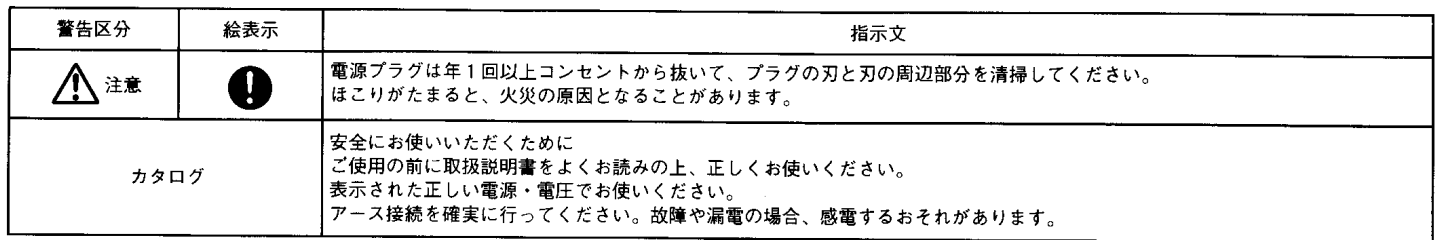 警告区分 絵表示 指示文
注意
電源プラグは年1回以上コンセントから抜いて、プラグの刃と刃の周辺部分を清掃してください。
ほこりがたまると、火災の原因となることがあります。
カタログ
安全にお使いいただくために
ご使用の前に取扱説明書をよくお読みの上、正しくお使いください。
表示された正しい電源・電圧でお使いください。
アース接続を確実に行ってください。故障や漏電の場合、感電するおそれがあります。